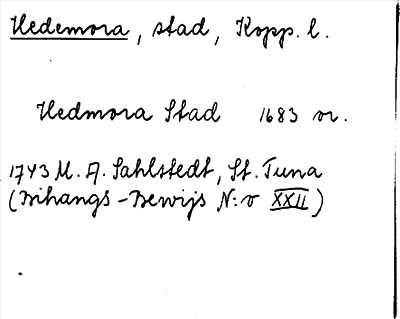 Hedemora, stad, Kopp. l.
Hedmora Stad 1683 or.
1743 M. A. Sahlstedt, St. Tuna
(Bihangs-Bewijs N:o XXII)